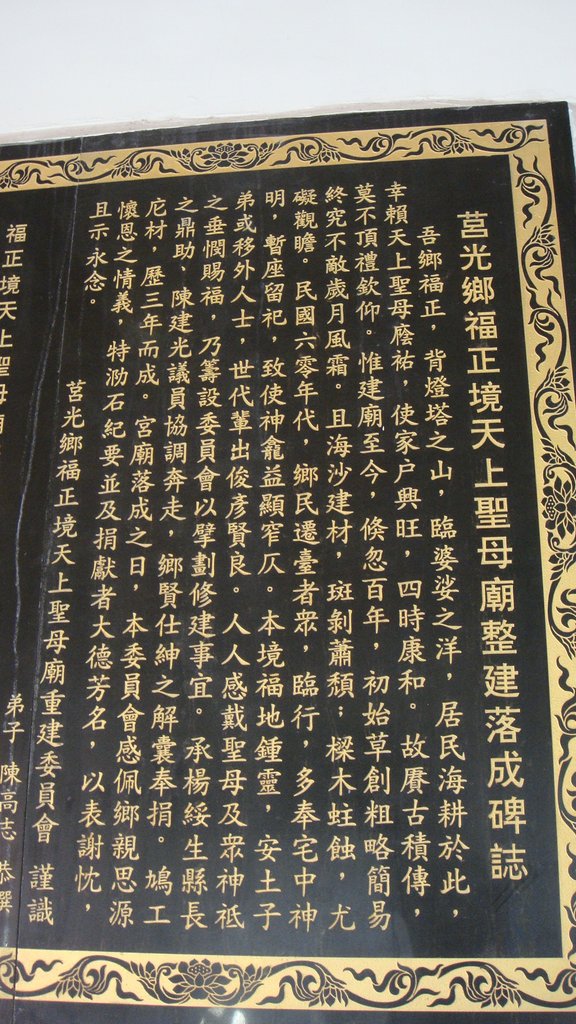 莒光鄉福正境天上聖母廟整建落成碑誌
吾鄉福正，背燈塔之山，臨婆娑之洋，居民海耕於此，
幸賴天上聖母庇祐，使家户興旺，四時康和。故賡古積傳，
莫不頂禮欽仰。惟建廟至今，倏忽百年，初始草創粗略簡易
終究不敵歲月風霜。且海沙建材，斑剝蕭頹；樑木蛀蝕，尤
礙觀瞻。民國六零年代，鄉民遷臺者衆，臨行，多奉宅中神
明，暫座留祀，致使神龕益顯窄仄。本境福地鍾靈，安土子
弟或移外人士，世代輩出俊彥賢良。人人感戴聖母及衆神祇
之垂憫賜福，乃籌設委員會以擘劃修建事宜。承楊綏生縣長
之鼎助、陳建光議員協調奔走，鄉賢仕紳之解囊奉捐。鳩工
庀材，歷三年而成。宮廟落成之日，本委員會感佩鄉親思源
懷恩之情義，特泐石紀要並及捐獻者大德芳名，以表謝忱，
且示永念。
莒光鄉福正境天上聖母廟重建委員會 謹識
弟子 陳高志 恭撰
福正境天上聖母廟